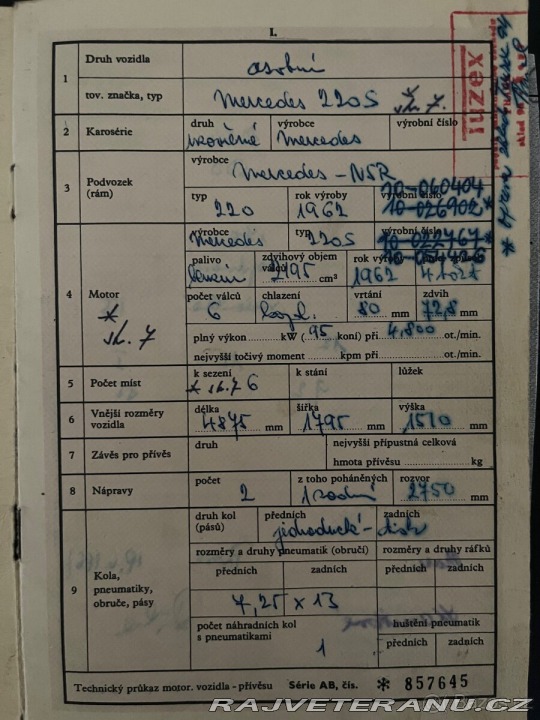 I.
1 Druh vozidla osobní
tov. značka, typ Mercedes 220S * str. 7.
2 Karosérie druh výrobce výrobní číslo
Mercedes
3 Podvozek (rám) výrobce
Mercedes - NSR
typ rok výroby výrobní číslo
220 1962 10-060404
10-026902 *
4 Motor * str. 7 výrobce typ výrobní číslo
Mercedes 220S 10-022767 *
palivo zdvihový objem válců rok výroby
benzin 2195 cm³ 1962
počet válců chlazení vrtání zdvih
6 kapal. 80 mm 72,8 mm
plný výkon kW (95 koní) při 4,800 ot./min.
nejvyšší točivý moment kpm při ot./min.
5 Počet míst k sezení k stání lůžek
* str. 7 6
6 Vnější rozměry vozidla délka šířka výška
4875 mm 1795 mm 1510 mm
7 Závěs pro přívěs druh nejvyšší přípustná celková
hmota přívěsu kg
8 Nápravy počet z toho poháněných rozvor
2 1 zadní 2750 mm
9 Kola, pneumatiky, obruče, pásy druh kol (pásů) předních zadních
jednoduché - disk
rozměry a druhy pneumatik (obručí) rozměry a druhy ráfků
předních zadních předních zadních
7,25 x 13
počet náhradních kol s pneumatikami huštění pneumatik
1 předních zadních
Technický průkaz motor. vozidla - přívěsu Série AB, čís. * 857645
RAJVETERANU.CZ